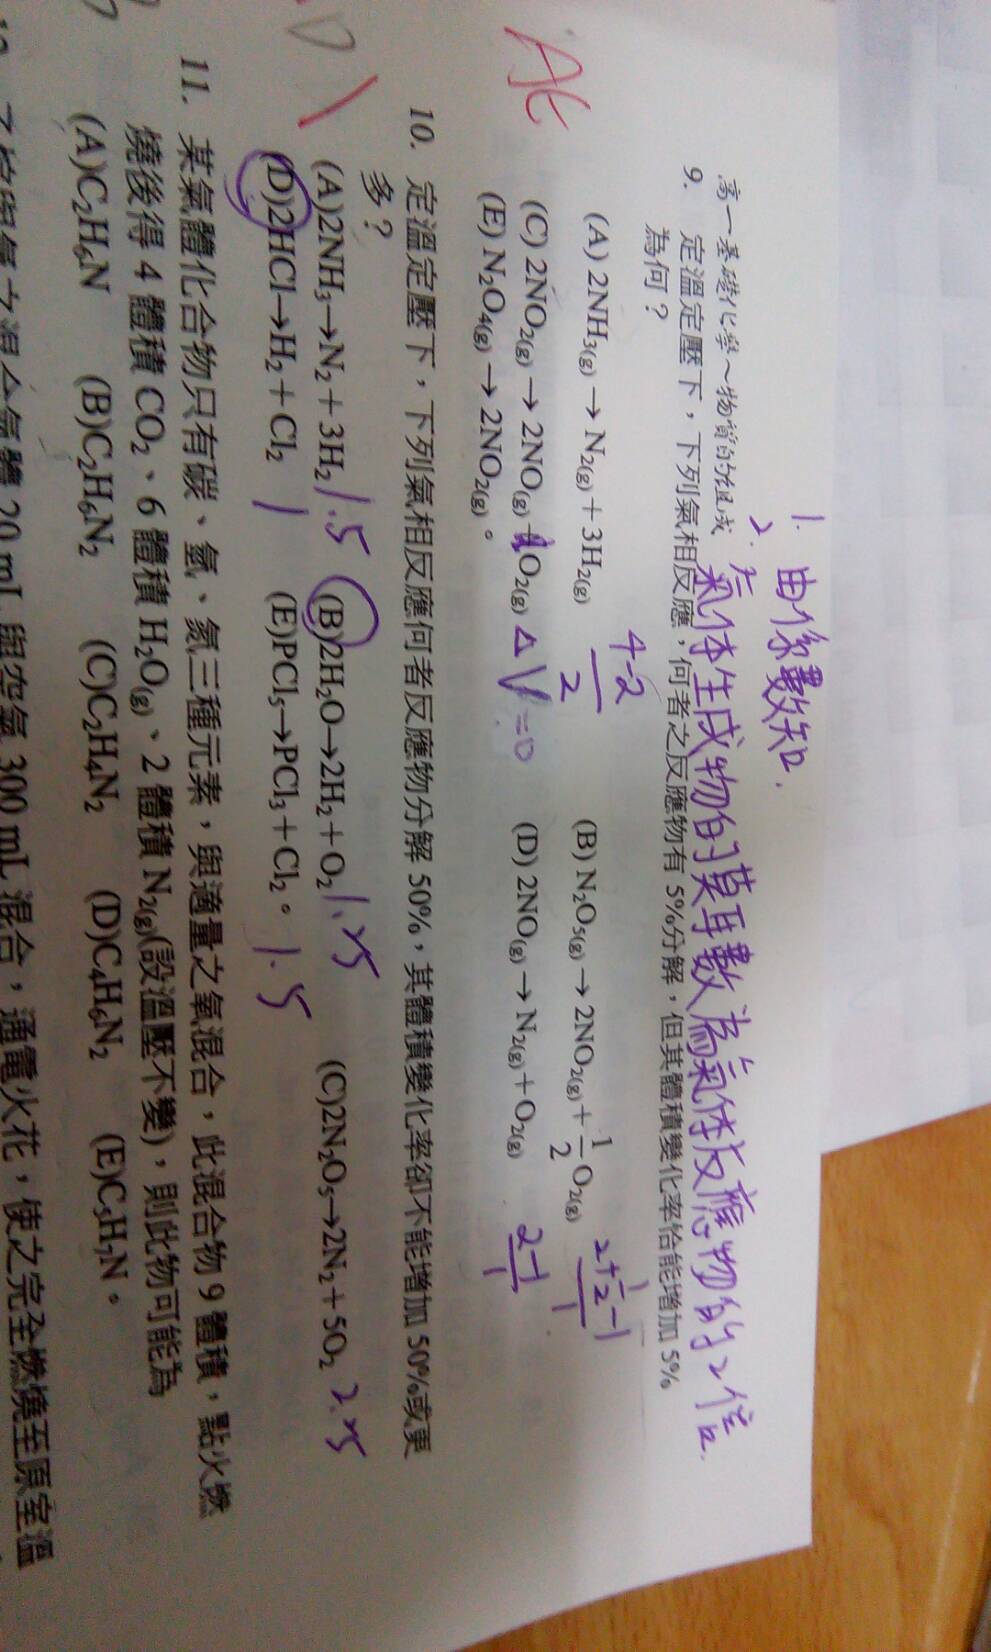 1. 由係數知.
2. 氣体生成物的莫耳數為氣体反應物的2倍.
高一基礎化學～物質的組成
9. 定溫定壓下，下列氣相反應，何者之反應物有 5%分解，但其體積變化率恰能增加 5%
為何？
(A) 2NH₃(g) → N₂(g) + 3H₂(g) 4-2/2 (B) N₂O₅(g) → 2NO₂(g) + 1/2 O₂(g) 2+1/2-1/1
(C) 2NO₂(g) → 2NO(g) + O₂(g) ΔV=0 (D) 2NO(g) → N₂(g) + O₂(g) 2-1/1
(E) N₂O₄(g) → 2NO₂(g)。
AE
10. 定溫定壓下，下列氣相反應何者反應物分解 50%，其體積變化率卻不能增加 50%或更
多？
(A)2NH₃→N₂+3H₂ 1.5 (B)2H₂O→2H₂+O₂ 1.25 (C)2N₂O₅→2N₂+5O₂ 2.25
(D)2HCl→H₂+Cl₂ 1 (E)PCl₅→PCl₃+Cl₂。 1.5
D
11. 某氣體化合物只有碳、氫、氮三種元素，與適量之氧混合，此混合物 9 體積，點火燃
燒後得 4 體積 CO₂、6 體積 H₂O(g)、2 體積 N₂(g)(設溫壓不變)，則此物可能為
(A)C₂H₆N (B)C₂H₆N₂ (C)C₂H₄N₂ (D)C₄H₆N₂ (E)C₅H₇N。
之混合氣體 20 mL 與空氣 300 mL 混合，通電火花，使之完全燃燒至原室溫